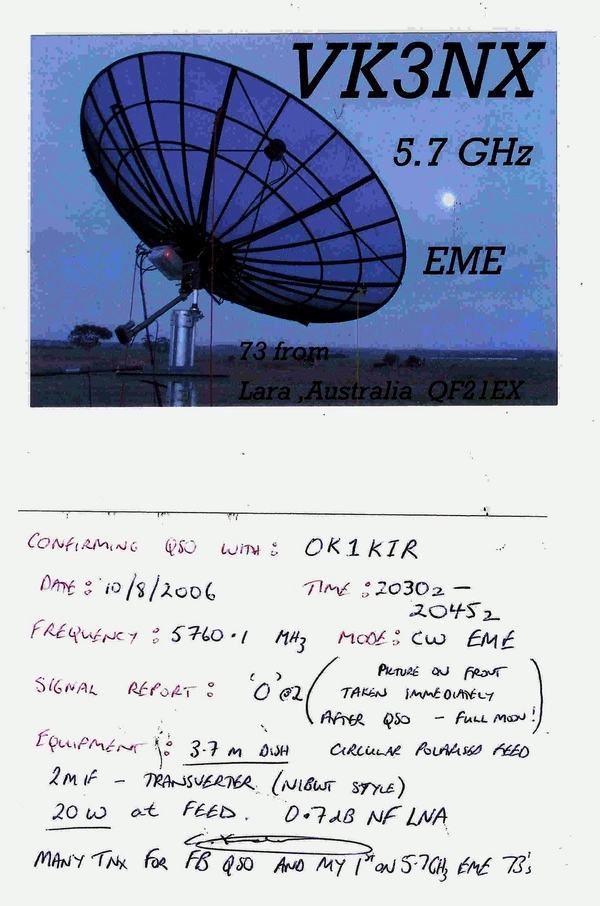 VK3NX
5.7 GHz
EME
73 from
Lara ,Australia QF21EX
CONFIRMING QSO WITH: OK1KIR
DATE: 10/8/2006 TIME: 2030z –
2045z
FREQUENCY: 5760.1 MHz MODE: CW EME
SIGNAL REPORT: 'O' @2 (PICTURE ON FRONT
TAKEN IMMEDIATELY
AFTER QSO – FULL MOON!)
EQUIPMENT: 3.7 m DISH CIRCULAR POLARISED FEED
2M IF – TRANSVERTER (N1BWT STYLE)
20W at FEED. 0.7dB NF LNA
MANY TNX FOR FB QSO AND MY 1st ON 5.7GHz EME 73's